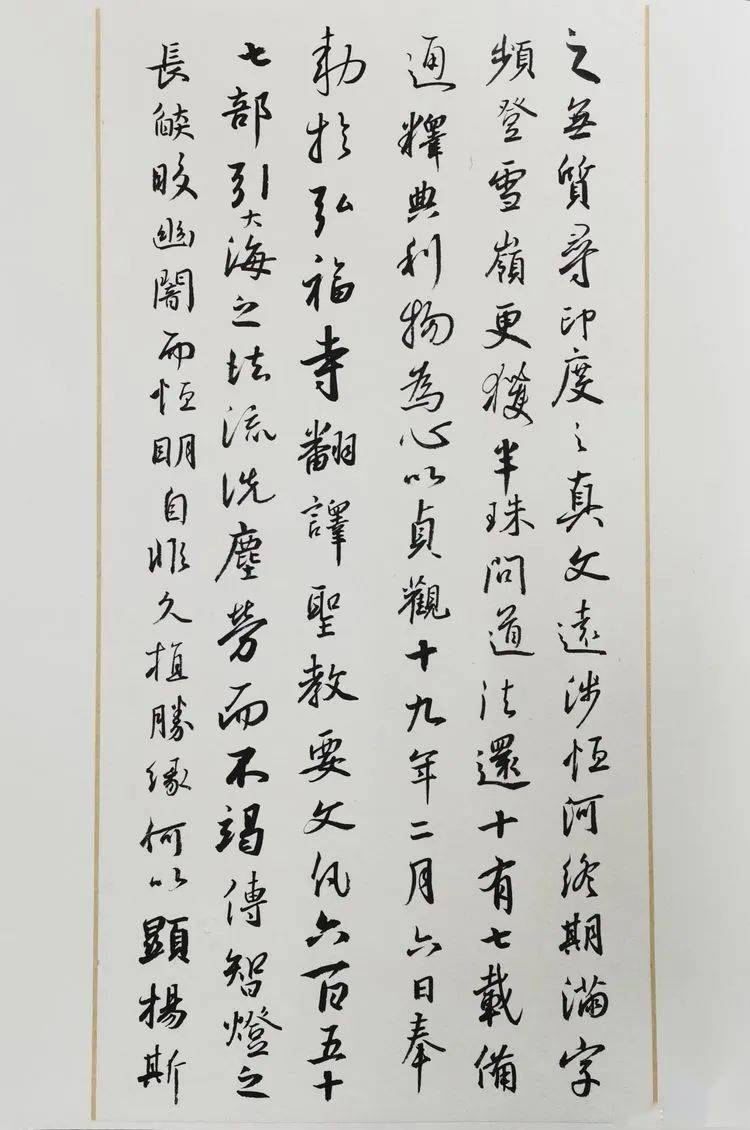 之無質尋印度之真文遠涉恒河終期滿字
頻登雪嶺更獲半珠問道法還十有七載備
通釋典利物為心以貞觀十九年二月六日奉
勅於弘福寺翻譯聖教要文凡六百五十
七部引大海之法流洗塵勞而不竭傳智燈之
長燄皎幽闇而恒明自非久植勝緣何以顯揚斯